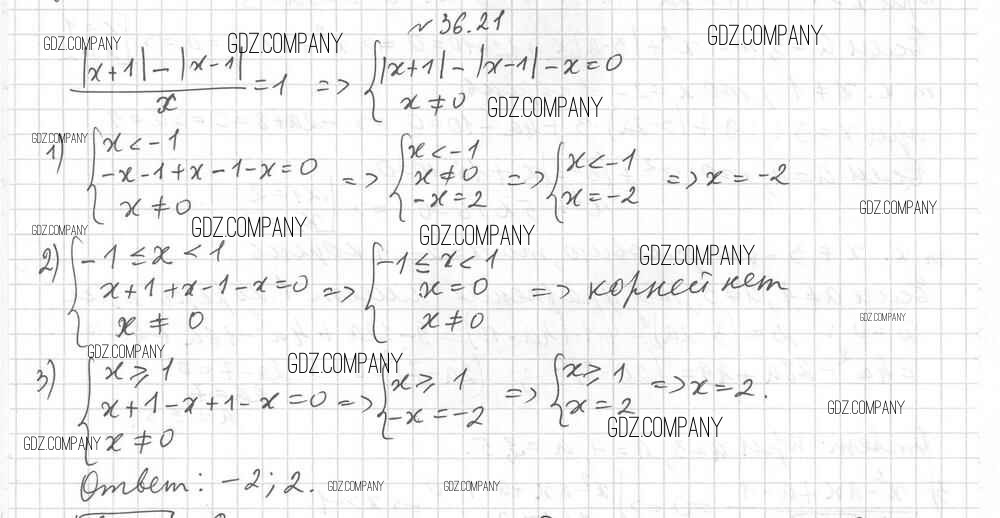 № 36.21
GDZ.COMPANY GDZ.COMPANY GDZ.COMPANY
(|x+1| - |x-1|)/x = 1 => { |x+1| - |x-1| - x = 0
x ≠ 0 GDZ.COMPANY
GDZ.COMPANY
1) { x < -1
-x-1+x-1-x=0
x ≠ 0
=> { x < -1
x ≠ 0
-x = 2
=> { x < -1
x = -2
=> x = -2
GDZ.COMPANY
GDZ.COMPANY GDZ.COMPANY GDZ.COMPANY GDZ.COMPANY
2) { -1 ≤ x < 1
x+1+x-1-x=0
x ≠ 0
=> { -1 ≤ x < 1
x = 0
x ≠ 0
=> корней нет
GDZ.COMPANY
GDZ.COMPANY GDZ.COMPANY
3) { x ⩾ 1
x+1-x+1-x=0
x ≠ 0
=> { x ⩾ 1
-x = -2
=> { x ⩾ 1
x = 2
=> x = 2.
GDZ.COMPANY GDZ.COMPANY GDZ.COMPANY
Ответ: -2; 2. GDZ.COMPANY GDZ.COMPANY